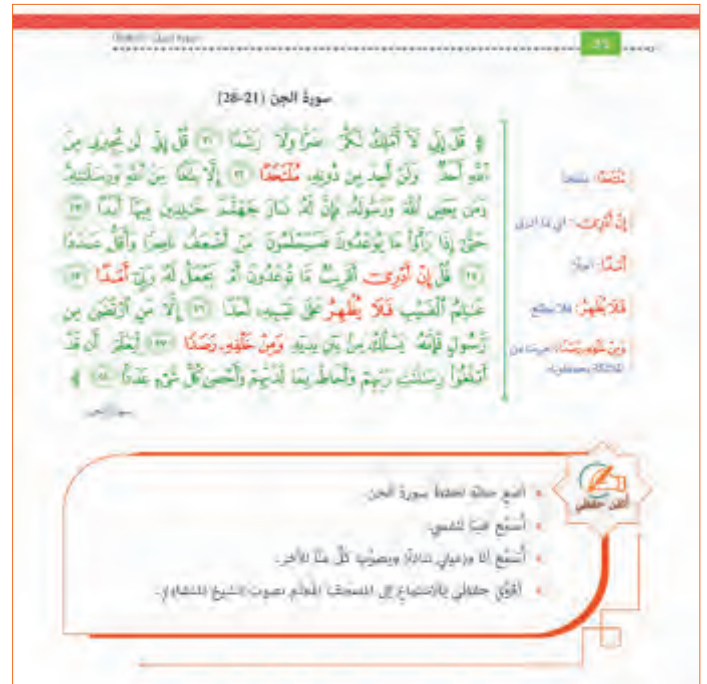 سورة الجن (21-28)
﴿ قُلْ إِنِّي لَا أَمْلِكُ لَكُمْ ضَرًّا وَلَا رَشَدًا ﴿٢١﴾ قُلْ إِنِّي لَن يُجِيرَنِي مِنَ
اللَّهِ أَحَدٌ وَلَنْ أَجِدَ مِن دُونِهِ مُلْتَحَدًا ﴿٢٢﴾ إِلَّا بَلَاغًا مِّنَ اللَّهِ وَرِسَالَاتِهِ
وَمَن يَعْصِ اللَّهَ وَرَسُولَهُ فَإِنَّ لَهُ نَارَ جَهَنَّمَ خَالِدِينَ فِيهَا أَبَدًا ﴿٢٣﴾
حَتَّى إِذَا رَأَوْا مَا يُوعَدُونَ فَسَيَعْلَمُونَ مَنْ أَضْعَفُ نَاصِرًا وَأَقَلُّ عَدَدًا
﴿٢٤﴾ قُلْ إِنْ أَدْرِي أَقَرِيبٌ مَّا تُوعَدُونَ أَمْ يَجْعَلُ لَهُ رَبِّي أَمَدًا ﴿٢٥﴾
عَالِمُ الْغَيْبِ فَلَا يُظْهِرُ عَلَى غَيْبِهِ أَحَدًا ﴿٢٦﴾ إِلَّا مَنِ ارْتَضَى مِن
رَّسُولٍ فَإِنَّهُ يَسْلُكُ مِن بَيْنِ يَدَيْهِ وَمِنْ خَلْفِهِ رَصَدًا ﴿٢٧﴾ لِّيَعْلَمَ أَن قَدْ
أَبْلَغُوا رِسَالَاتِ رَبِّهِمْ وَأَحَاطَ بِمَا لَدَيْهِمْ وَأَحْصَى كُلَّ شَيْءٍ عَدَدًا ﴿٢٨﴾ ﴾
سورة الجن
مُلْتَحَدًا: ملتجأ
إِنْ أَدْرِي: أي ما أدري
أَمَدًا: أجلًا
فَلَا يُظْهِرُ: فلا يطلع
وَمِنْ خَلْفِهِ رَصَدًا: حرسًا من
الملائكة يحفظونه
أتقن حفظي
• أضع خطّة لحفظ سورة الجن.
• أُسَمِّع غيبًا لنفسي.
• أُسَمِّع أنا وزميلي تبادلًا ويصوّب كلّ منّا للآخر.
• أقوّي حفظي بالاستماع إلى المصحف المعلّم بصوت الشيخ المنشاوي.